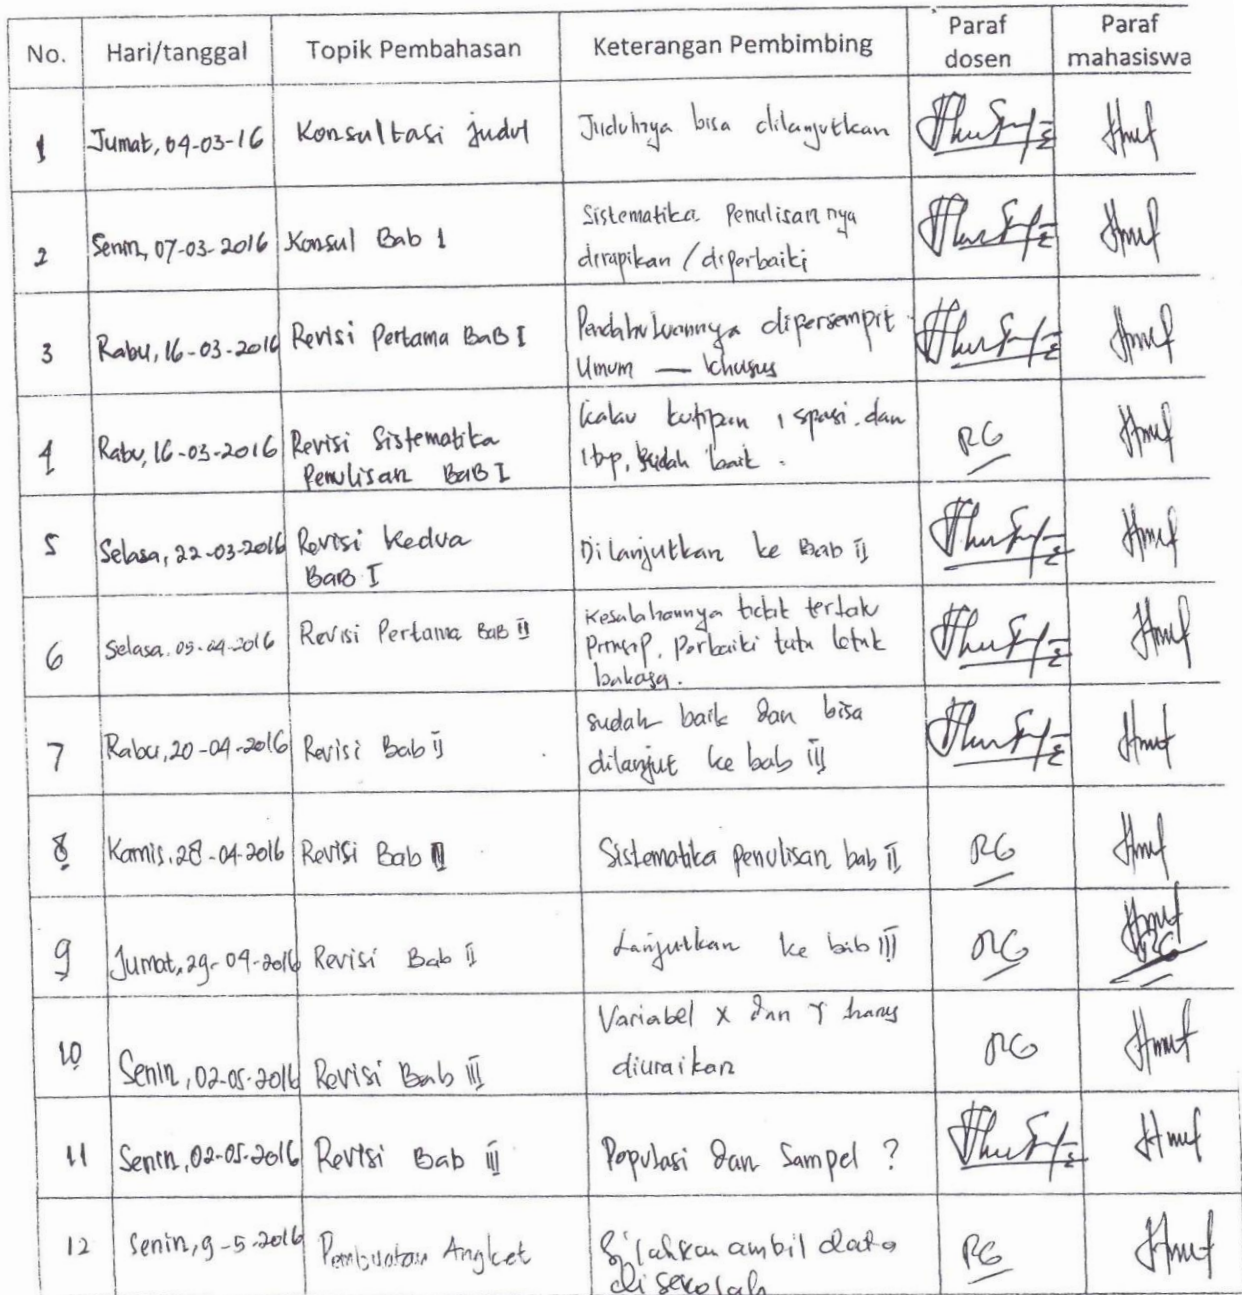 No. Hari/tanggal Topik Pembahasan Keterangan Pembimbing Paraf dosen Paraf mahasiswa
1 Jumat, 04-03-16 Konsultasi judul Judulnya bisa dilanjutkan
2 Senin, 07-03-2016 Konsul Bab 1 Sistematika Penulisannya
dirapikan / diperbaiki
3 Rabu, 16-03-2016 Revisi Pertama BaB I Pendahuluannya dipersempit
Umum — khusus
4 Rabu, 16-03-2016 Revisi Sistematika Kalau kutipan 1 spasi. dan RG
Penulisan BaB I sudah baik.
5 Selasa, 22-03-2016 Revisi Kedua Dilanjutkan ke Bab II
BaB I
6 Selasa, 05-04-2016 Revisi Pertama BaB II Kesalahannya
Prinsip. Perbaiki
bahasa.
7 Rabu, 20-04-2016 Revisi Bab II sudah baik dan bisa
dilanjut ke bab III
8 Kamis, 28-04-2016 Revisi Bab II Sistematika penulisan bab II RG
9 Jumat, 29-04-2016 Revisi Bab II Lanjutkan ke bab III RG RG
10 Senin, 02-05-2016 Revisi Bab III Variabel X dan Y harus RG
diuraikan
11 Senin, 02-05-2016 Revisi Bab III Populasi dan Sampel ?
12 Senin, 9-5-2016 Pembuatan Angket Silahkan ambil data RG
di sekolah